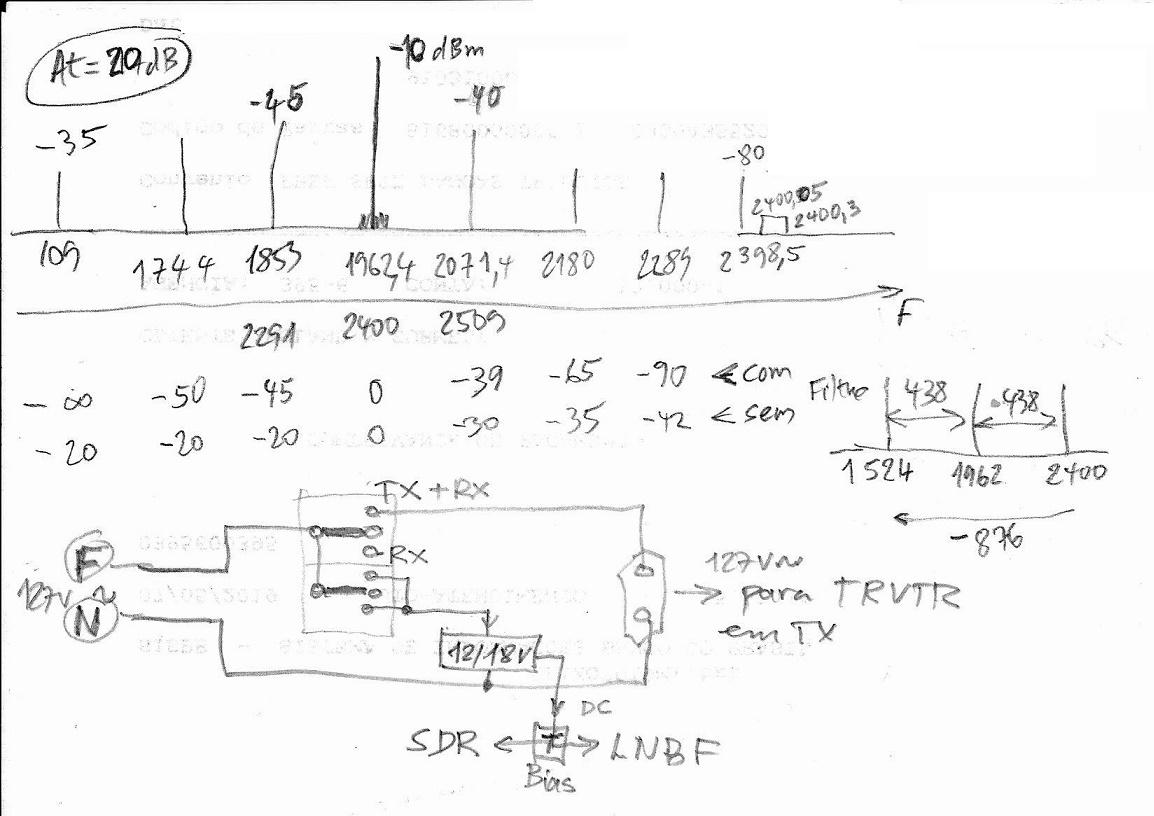 At=20dB
-10 dBm
-45
-40
-35
-80
2400,05
2400,3
109 1744 1853 1962,4 2071,4 2180 2289 2398,5
F
2291 2400 2509
-∞ -50 -45 0 -39 -65 -90 ← com
-20 -20 -20 0 -30 -35 -42 ← sem
Filtro
438 438
1524 1962 2400
-876
TX+RX
RX
F
127V~
N
12/18V
127V~
para TRVTR
em TX
DC
SDR T LNBF
Bias